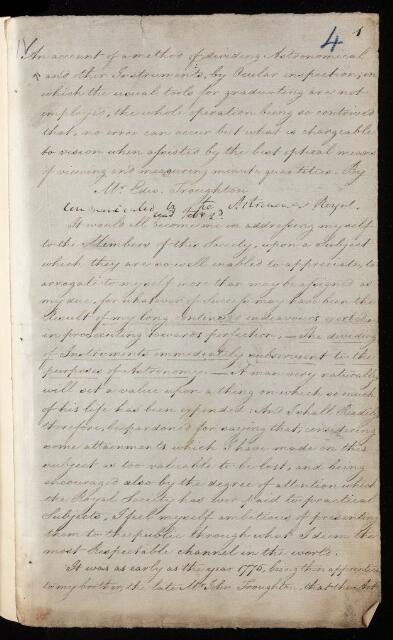 4 1
An account of a method of dividing Astronomical
and other Instruments, by Ocular inspection; in
which the usual tools for graduating are not
employed, the whole operation being so contrived
that, no error can occur but what is chargeable
to vision when assisted by the best optical means
of viewing and measuring minute quantities. By
Mr. Edw. Troughton
Communicated by the Astronomer Royal.
read Feb. 2d
It would ill become me in addressing myself
to the Members of this Society, upon a subject
which they are so well enabled to appreciate, to
arrogate to myself more than may be assigned as
my due, for whatever of Success may have been the
Result of my long endeavours exerted
in prosecuting towards perfection, – The dividing
of Instruments immediately subservient to the
purposes of Astronomy. – A man very naturally
will set a value upon a thing on which so much
of his life has been expended: And I shall Readily
therefore, be pardoned for saying that, considering
some attainments which I have made on this
subject as too valuable to be lost, and being
encouraged also by the degree of attention which
the Royal Society has ever paid to practical
Subjects, I feel myself ambitious of presenting
them to the public through what I deem the
most Respectable channel in the world.
It was as early as the year 1775, being then apprentice
to my brother, the late Mr. John Troughton, that the Art